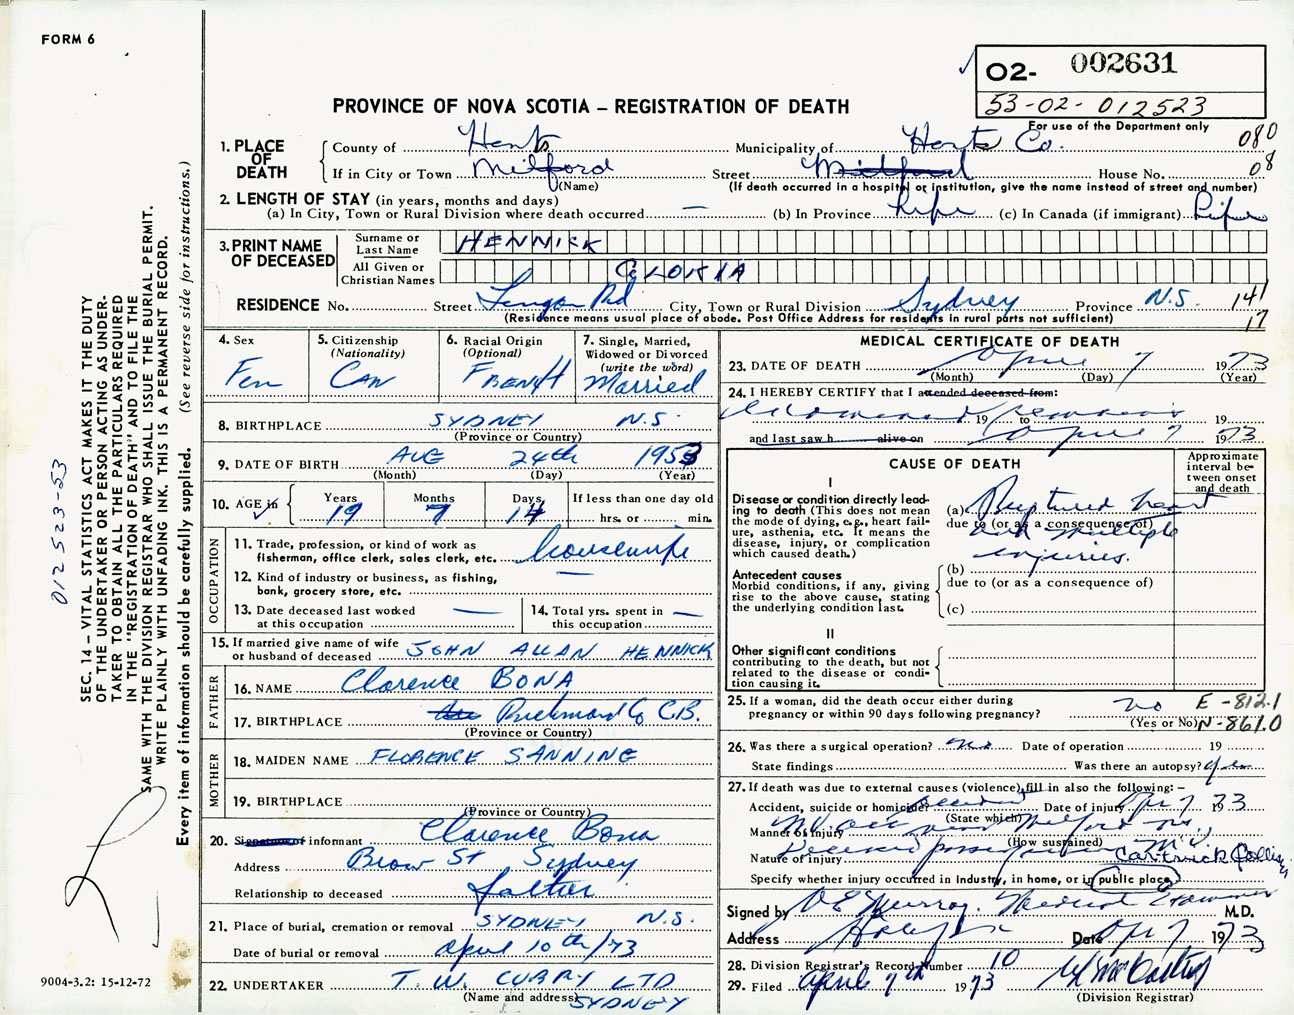 FORM 6
02- 002631
53-02-012523
For use of the Department only
PROVINCE OF NOVA SCOTIA – REGISTRATION OF DEATH
080
08
1. PLACE OF DEATH
County of Hants Municipality of Hants Co.
If in City or Town Milford Street Milford House No.
(Name) (If death occurred in a hospital or institution, give the name instead of street and number)
2. LENGTH OF STAY (in years, months and days)
(a) In City, Town or Rural Division where death occurred — (b) In Province Life (c) In Canada (if immigrant) Life
3. PRINT NAME OF DECEASED
Surname or Last Name HENNICK
All Given or Christian Names GLORIA
RESIDENCE No. Street Rd City, Town or Rural Division Sydney Province N.S. 141
(Residence means usual place of abode. Post Office Address for residents in rural parts not sufficient) 17
4. Sex
Fem
5. Citizenship
(Nationality)
CAN
6. Racial Origin
(Optional)
FRENCH
7. Single, Married,
Widowed or Divorced
(write the word)
Married
8. BIRTHPLACE SYDNEY N.S.
(Province or Country)
9. DATE OF BIRTH AUG 24th 1953
(Month) (Day) (Year)
10. AGE in
Years 19
Months 7
Days 14
If less than one day old
hrs. or min.
OCCUPATION
11. Trade, profession, or kind of work as
fisherman, office clerk, sales clerk, etc. housewife
12. Kind of industry or business, as fishing,
bank, grocery store, etc. —
13. Date deceased last worked —
at this occupation
14. Total yrs. spent in —
this occupation
15. If married give name of wife
or husband of deceased JOHN ALLAN HENNICK
FATHER
16. NAME Clarence BONA
17. BIRTHPLACE Richmond Co C.B.
(Province or Country)
MOTHER
18. MAIDEN NAME FLORENCE SANNING
19. BIRTHPLACE
(Province or Country)
20. Signature of informant Clarence Bona
Address Brow St Sydney
Relationship to deceased father
21. Place of burial, cremation or removal SYDNEY N.S.
Date of burial or removal April 10th/73
22. UNDERTAKER T. W. CURRY LTD
(Name and address) SYDNEY
MEDICAL CERTIFICATE OF DEATH
23. DATE OF DEATH April 7 1973
(Month) (Day) (Year)
24. I HEREBY CERTIFY that I attended deceased from:
Examined remains 19 to 19
and last saw h alive on April 7 1973
CAUSE OF DEATH
Approximate
interval be-
tween onset
and death
I
Disease or condition directly lead-
ing to death (This does not mean
the mode of dying, e.g., heart fail-
ure, asthenia, etc. It means the
disease, injury, or complication
which caused death.)
(a) Ruptured heart
due to (or as a consequence of)
and multiple
injuries.
Antecedent causes
Morbid conditions, if any, giving
rise to the above cause, stating
the underlying condition last.
(b)
due to (or as a consequence of)
(c)
II
Other significant conditions
contributing to the death, but not
related to the disease or condi-
tion causing it.
25. If a woman, did the death occur either during
pregnancy or within 90 days following pregnancy? no
(Yes or No)
E-812.1
N-861.0
26. Was there a surgical operation? no Date of operation 19
State findings Was there an autopsy? yes
27. If death was due to external causes (violence) fill in also the following: –
Accident, suicide or homicide? accident Date of injury Apr 7 1973
(State which)
Manner of injury near Milford N.S.
(How sustained)
Nature of injury Deceased passenger in M.V.
Car-truck Collision
Specify whether injury occurred in industry, in home, or in public place
Signed by Murray. Medical Examiner M.D.
Address Halifax Date Apr 7 1973
28. Division Registrar's Record Number 10
29. Filed April 7th 1973
(Division Registrar)
SEC. 14 – VITAL STATISTICS ACT MAKES IT THE DUTY
OF THE UNDERTAKER OR PERSON ACTING AS UNDER-
TAKER TO OBTAIN ALL THE PARTICULARS REQUIRED
IN THE "REGISTRATION OF DEATH" AND TO FILE THE
SAME WITH THE DIVISION REGISTRAR WHO SHALL ISSUE THE BURIAL PERMIT.
WRITE PLAINLY WITH UNFADING INK. THIS IS A PERMANENT RECORD.
Every item of information should be carefully supplied. (See reverse side for instructions.)
012523-53
9004-3.2: 15-12-72